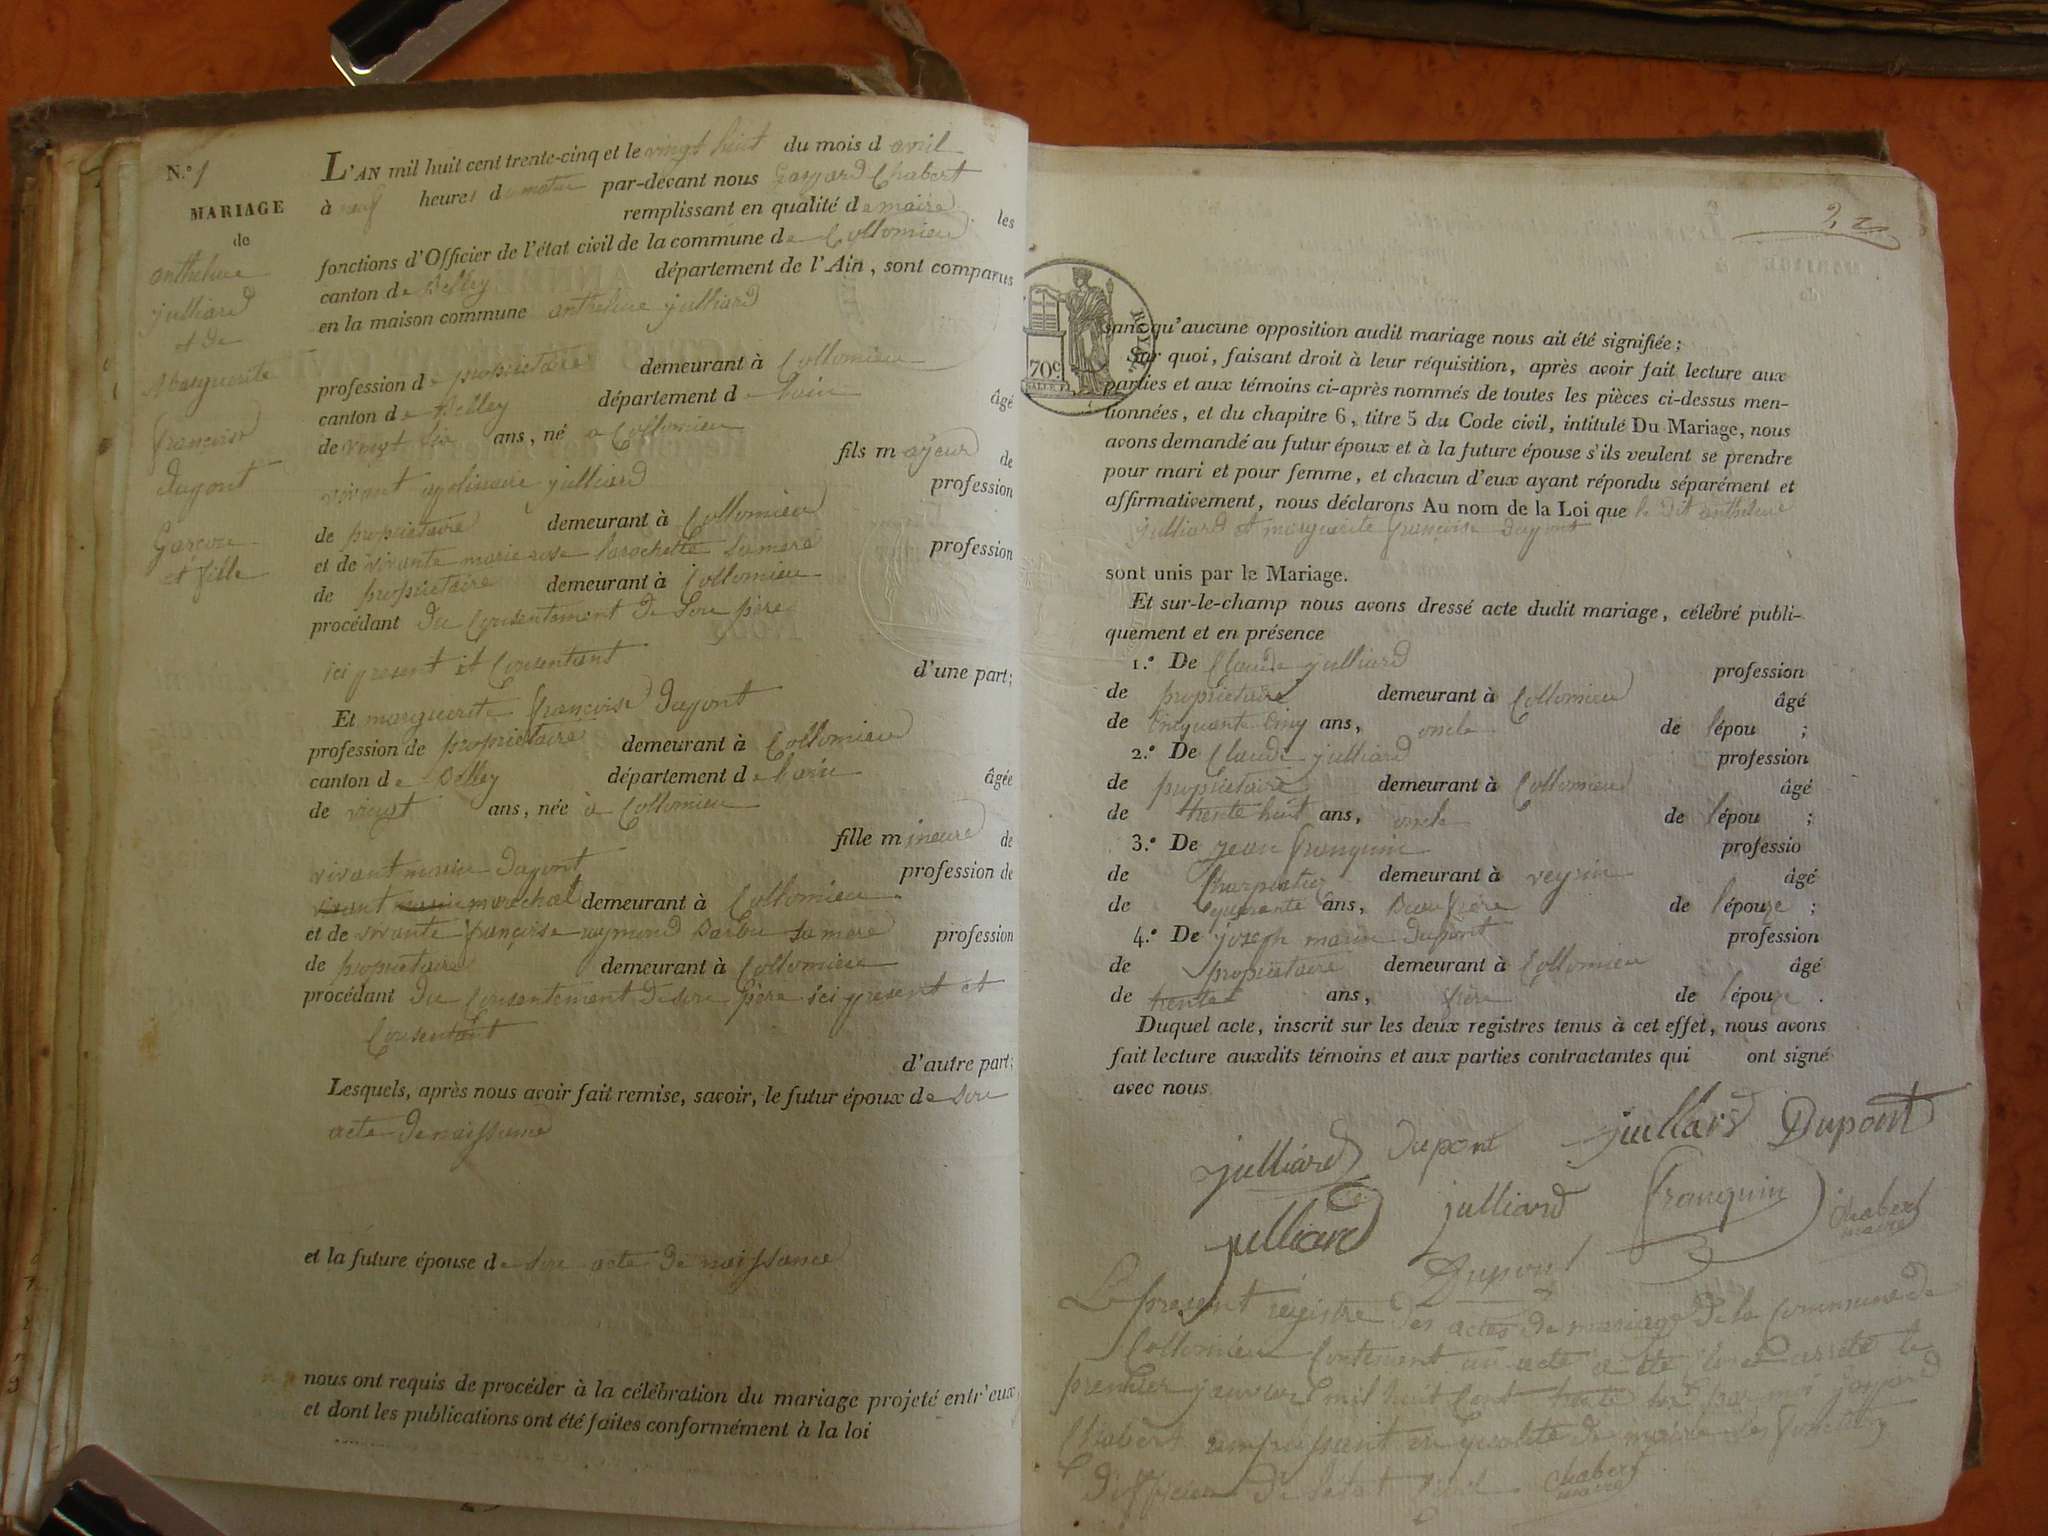 N.° 1
MARIAGE
de
anthelme
julliard
et de
Marguerite
françoise
dupont
Garcon
et fille
L'AN mil huit cent trente-cinq et le vingt huit du mois d avril
à neuf heures du matin par-devant nous Gaspard Chabert
remplissant en qualité de maire les
fonctions d'Officier de l'état civil de la commune de Collomieu
canton de Belley département de l'Ain, sont comparus
en la maison commune anthelme julliard
profession de propriétaire demeurant à Collomieu
canton de Belley département de lain âgé
de vingt six ans, né a Collomieu
fils mayeur de
vivant apolinaire julliard profession
de propriétaire demeurant à Collomieu
et de vivante marie rose larochette sa mere profession
de propriétaire demeurant à Collomieu
procédant du Consentement de son père
ici present et Consentant d'une part;
Et marguerite françoise dupont
profession de propriétaire demeurant à Collomieu
canton de Belley département de lain âgée
de vingt ans, née à Collomieu
fille mineure de
vivant marin dupont profession de
marechal demeurant à Collomieu
et de vivante françoise aymond Barbu sa mere profession
de propriétaire demeurant à Collomieu
procédant du Consentement de son père ici present et
Consentant
d'autre part;
Lesquels, après nous avoir fait remise, savoir, le futur époux de son
acte de naissance
et la future épouse de son acte de naissance
nous ont requis de procéder à la célébration du mariage projeté entr'eux
et dont les publications ont été faites conformément à la loi
2
ROYAL
70c
sans qu'aucune opposition audit mariage nous ait été signifiée;
Sur quoi, faisant droit à leur réquisition, après avoir fait lecture aux
parties et aux témoins ci-après nommés de toutes les pièces ci-dessus men-
tionnées, et du chapitre 6, titre 5 du Code civil, intitulé Du Mariage, nous
avons demandé au futur époux et à la future épouse s'ils veulent se prendre
pour mari et pour femme, et chacun d'eux ayant répondu séparément et
affirmativement, nous déclarons Au nom de la Loi que le dit anthelme
julliard et marguerite françoise dupont
sont unis par le Mariage.
Et sur-le-champ nous avons dressé acte dudit mariage, célébré publi-
quement et en présence
1.° De Claude julliard profession
de propriétaire demeurant à Collomieu âgé
de Cinquante Cinq ans, oncle de lépou ;
2.° De Claude julliard profession
de propriétaire demeurant à Collomieu âgé
de trente huit ans, oncle de lépou ;
3.° De jean franquin professio
de Charpentier demeurant à veyrin âgé
de quarante ans, Beaufrère de lépouze ;
4.° De joseph marin dupont profession
de propriétaire demeurant à Collomieu âgé
de trente ans, frère de lépouze .
Duquel acte, inscrit sur les deux registres tenus à cet effet, nous avons
fait lecture auxdits témoins et aux parties contractantes qui ont signé
avec nous
julliard Dupont juillard Dupont
julliard julliard franquin Chabert
maire
Dupont
Le present registre des actes de mariage de la Commune de
Collomieu Contenant un acte a été clos et arrêté le
premier janvier mil huit Cent trente six par moi gaspard
Chabert remplissant en qualité de maire les fonctions
d'officier de l'état Civil Chabert
maire